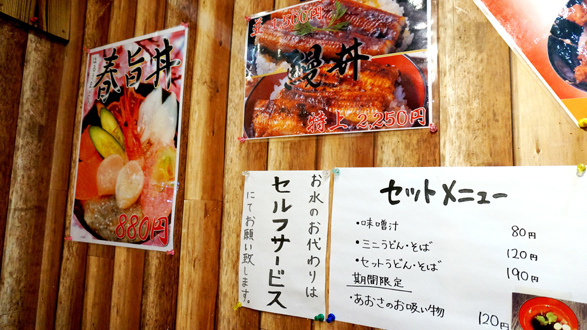 春旨丼
880円
並 1,500円
鰻丼
特上 2,250円
お水のお代わりは
セルフサービス
にてお願い致します。
セットメニュー
・味噌汁 80円
・ミニうどん・そば 120円
・セットうどん・そば 190円
期間限定
・あおさのお吸い物 120円